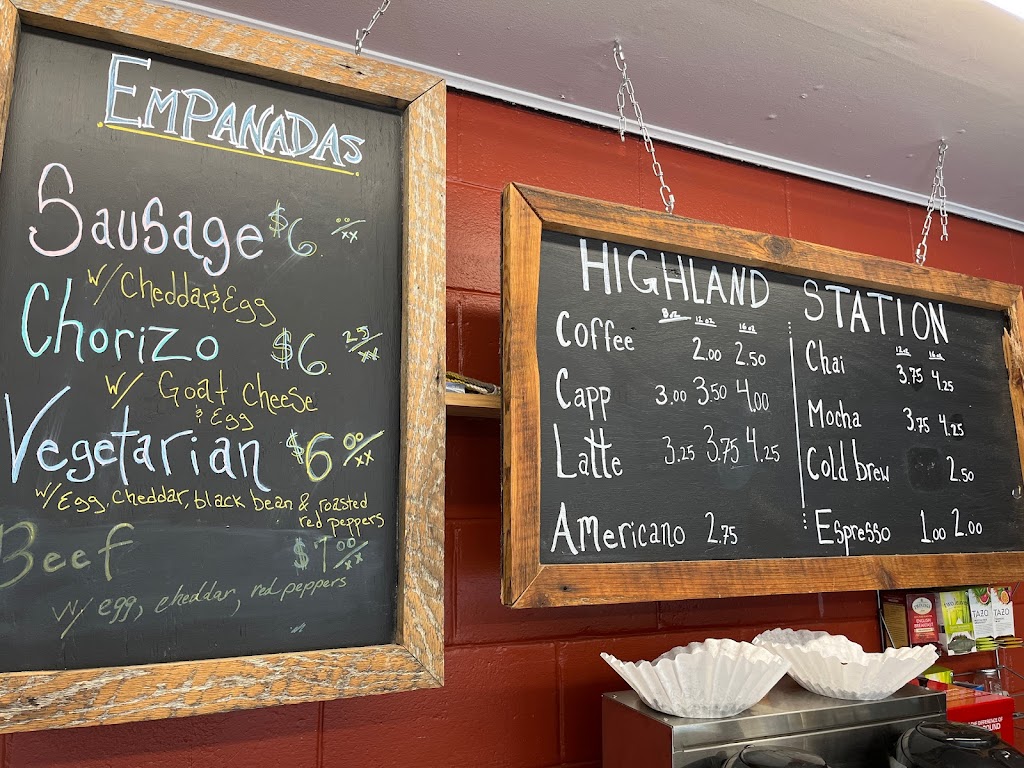 EMPANADAS
Sausage $6 00/xx
w/ Cheddar & Egg
Chorizo $6. 25/xx
w/ Goat Cheese
& Egg
Vegetarian $6 00/xx
w/ Egg, cheddar, black bean & roasted
red peppers
Beef $7 00/xx
w/ egg, cheddar, red peppers
HIGHLAND STATION
8 oz 12 oz 16 oz
Coffee 2.00 2.50
Capp 3.00 3.50 4.00
Latte 3.25 3.75 4.25
Americano 2.75
12 oz 16 oz
Chai 3.75 4.25
Mocha 3.75 4.25
Cold brew 2.50
Espresso 1.00 2.00
TWININGS
ENGLISH BREAKFAST
TAZO
TAZO